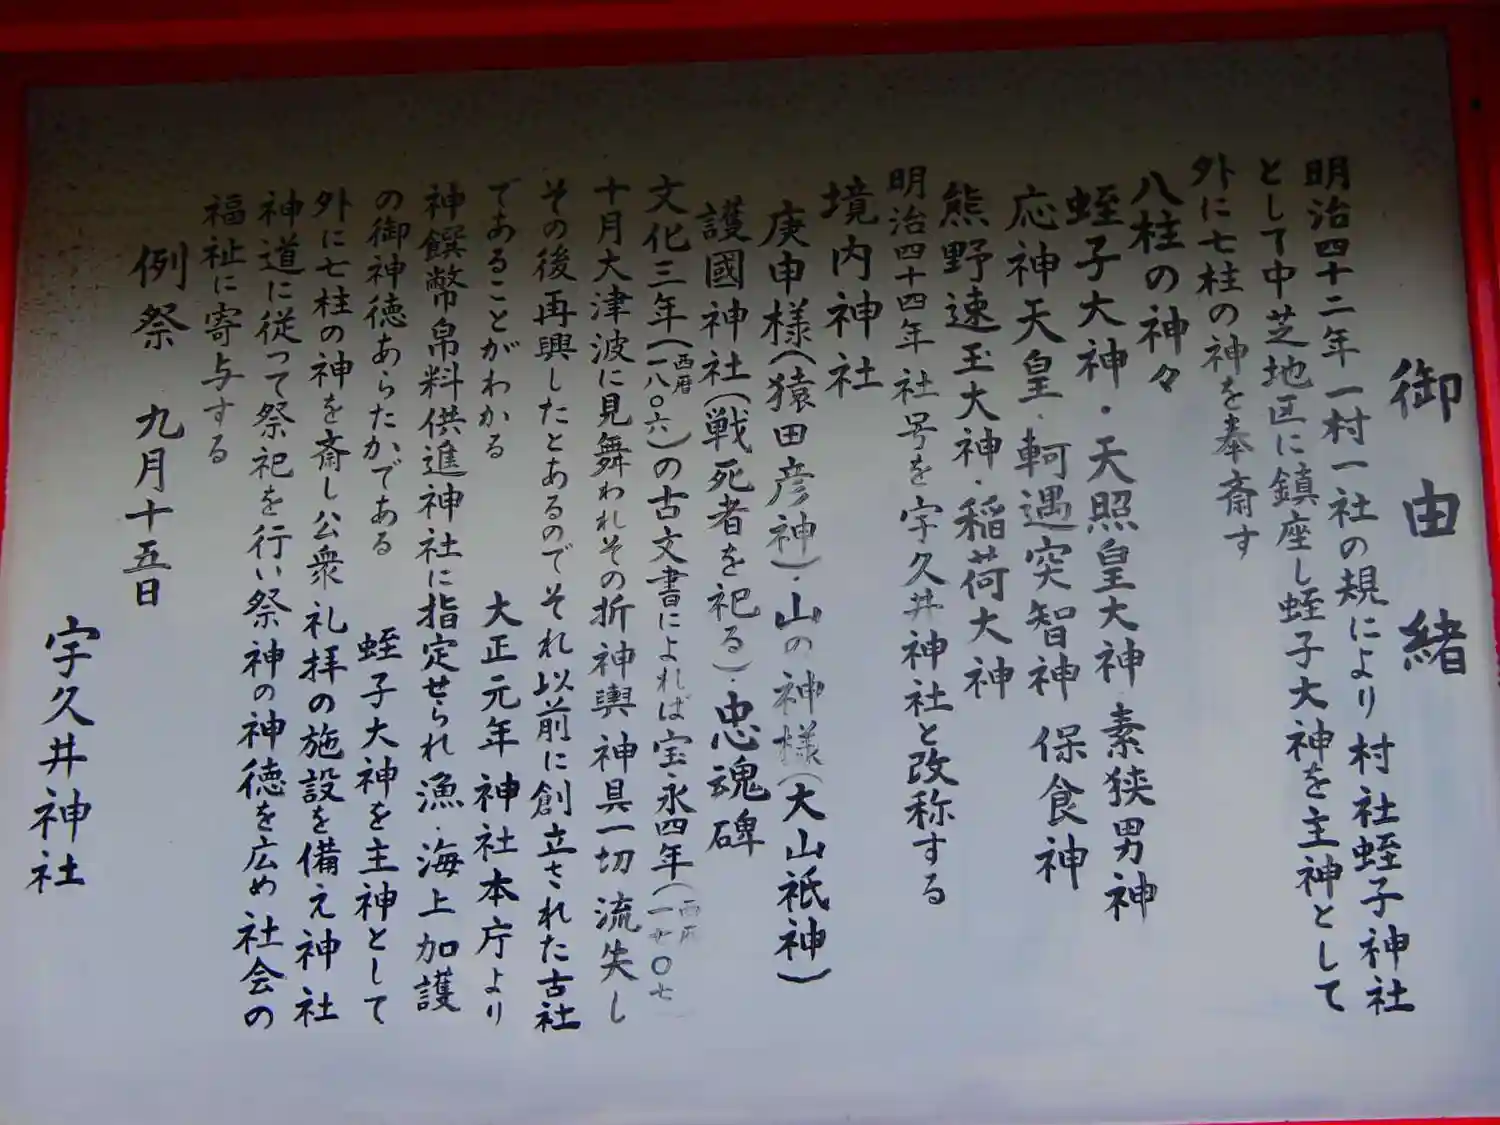 御由緒
明治四十二年一村一社の規により村社蛭子神社
として中芝地区に鎮座し蛭子大神を主神として
外に七柱の神を奉斎す
八柱の神々
蛭子大神・天照皇大神 素狭男神
応神天皇・軻遇突智神 保食神
熊野速玉大神・稲荷大神
明治四十四年 社号を宇久井神社と改称する
境内神社
庚申様(猿田彦神)・山の神様(大山祇神)
護國神社(戦死者を祀る)・忠魂碑
文化三年(西暦一八〇六)の古文書によれば宝永四年(西暦一七〇七)
十月大津波に見舞われその折神輿神具一切流失し
その後再興したとあるのでそれ以前に創立された古社
であることがわかる 大正元年神社本庁より
神饌幣帛料供進神社に指定せられ漁・海上加護
の御神徳あらたかである 蛭子大神を主神として
外に七柱の神を斎し公衆礼拝の施設を備え神社
神道に従って祭祀を行い祭神の神徳を広め社会の
福祉に寄与する
例祭 九月十五日
宇久井神社